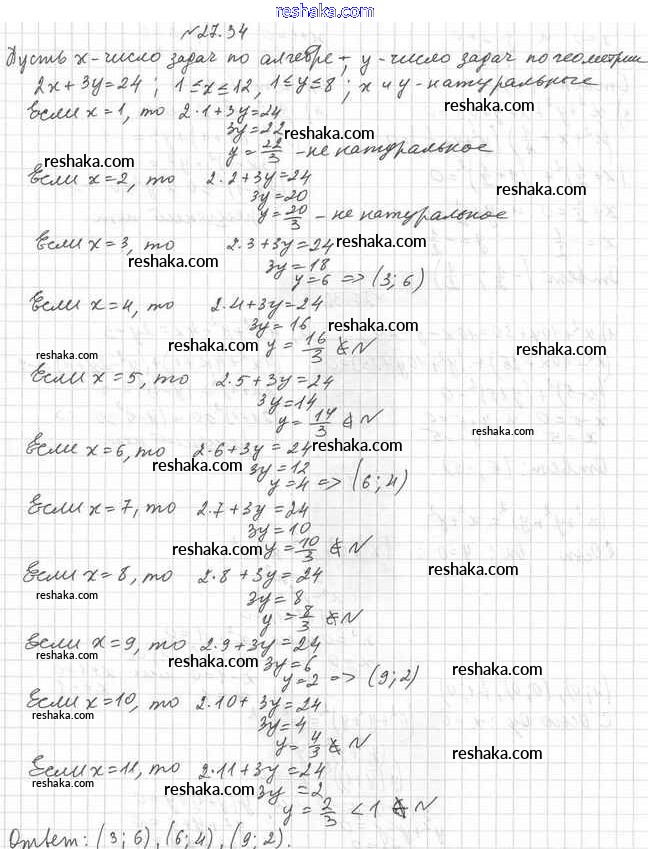 reshaka.com
№27.34
Пусть x-число задач по алгебре, y-число задач по геометрии
2x+3y=24; 1≤x≤12, 1≤y≤8; x и y-натуральные
reshaka.com
Если x=1, то 2·1+3y=24
3y=22 reshaka.com
y=22/3 -не натуральное
reshaka.com
Если x=2, то 2·2+3y=24
reshaka.com
3y=20
y=20/3 -не натуральное
Если x=3, то 2·3+3y=24 reshaka.com
reshaka.com 3y=18
y=6 => (3;6)
Если x=4, то 2·4+3y=24
3y=16 reshaka.com
reshaka.com y=16/3 ∉ N reshaka.com
reshaka.com
Если x=5, то 2·5+3y=24
3y=14
y=14/3 ∉ N
reshaka.com
Если x=6, то 2·6+3y=24 reshaka.com
reshaka.com 3y=12
y=4 => (6;4)
Если x=7, то 2·7+3y=24
3y=10
reshaka.com y=10/3 ∉ N
reshaka.com
Если x=8, то 2·8+3y=24
reshaka.com 3y=8
y=8/3 ∉ N
Если x=9, то 2·9+3y=24
reshaka.com reshaka.com 3y=6 reshaka.com
y=2 => (9;2)
Если x=10, то 2·10+3y=24
reshaka.com 3y=4
y=4/3 ∉ N
reshaka.com
Если x=11, то 2·11+3y=24
reshaka.com reshaka.com 3y=2
y=2/3 <1 ∉ N
Ответ: (3;6), (6;4), (9;2).
reshaka.com